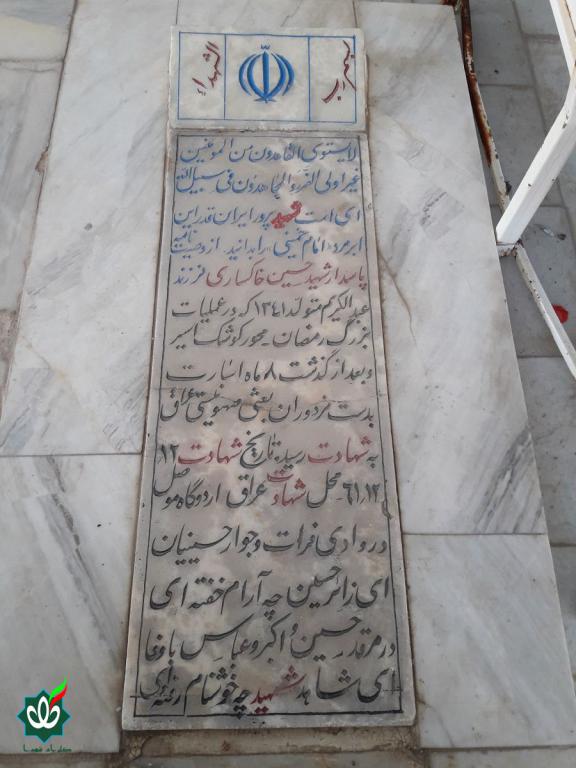 بسم رب
الشهداء
لا یستوی القاعدون من المومنین
غیر اولی الضرر والمجاهدون فی سبیل الله
ای امت شهید پرور ایران قدر این
ابر مرد، امام خمینی را بدانید. از وصیت نامه
پاسدار شهید حسین خاکساری فرزند
عبدالکریم متولد ۱۳۴۱ که در عملیات
بزرگ رمضان. محور کوشک اسیر
و بعد از گذشت ۸ ماه اسارت
بدست مزدوران بعثی صهونیستی عراق
به شهادت رسید. تاریخ شهادت ۱۲
.۶۱.۱۲ محل شهادت عراق اردوگاه موصل
در وادی فرات و جوار حسینیان
ای زائر حسین چه آرام خفته ای
در مرقد حسین و اکبر و عباس با وفا
ای شاهد شهید چه خوشنام رفته ای